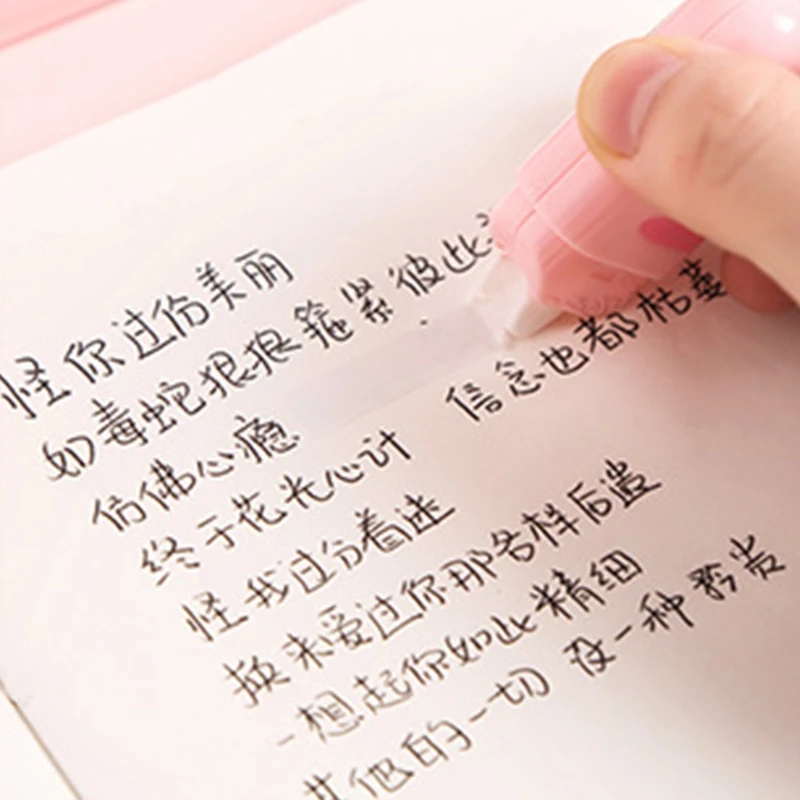 怪你过份美丽
如毒蛇狠狠箍紧彼此
仿佛心瘾
终于花光心计 信念也都枯萎
怪我过分着迷
换来爱过你那各样后遗
一想起你如此精细
其他的一切 没一种矜贵